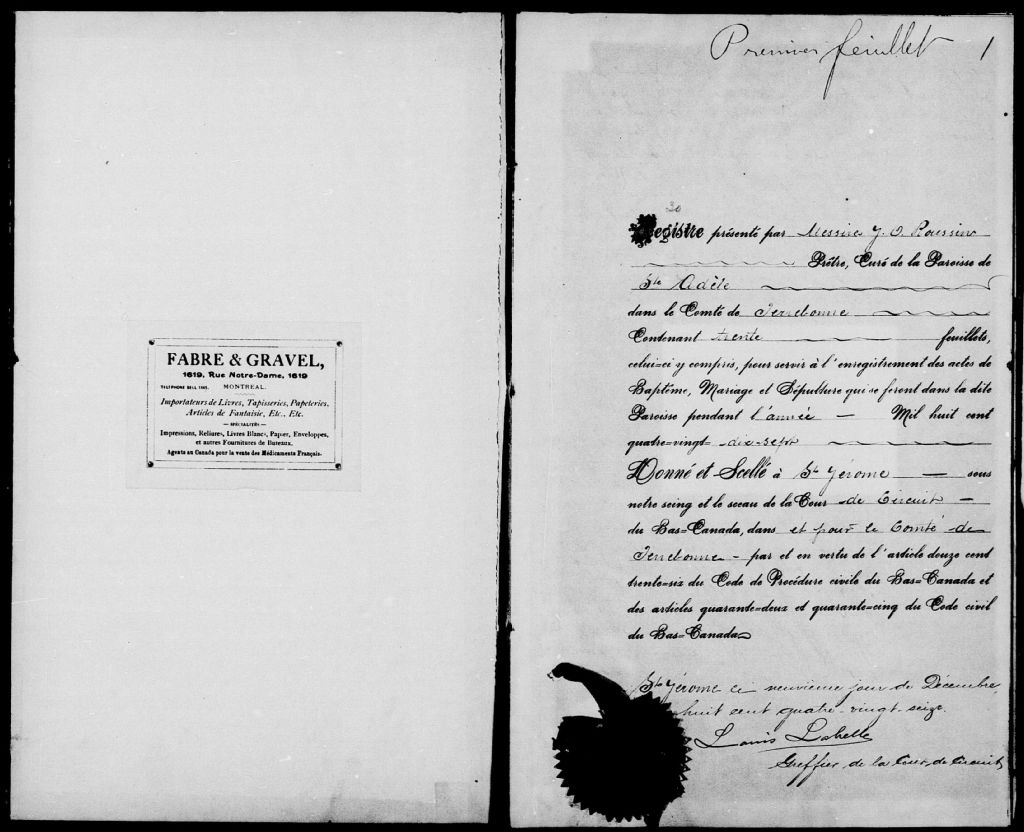 FABRE & GRAVEL,
1619, Rue Notre-Dame, 1619
TELEPHONE BELL 1985. MONTREAL.
Importateurs de Livres, Tapisseries, Papeteries,
Articles de Fantaisie, Etc., Etc.
— SPÉCIALITÉS —
Impressions, Reliures, Livres Blancs, Papier, Enveloppes,
et autres Fournitures de Bureaux.
Agents au Canada pour la vente des Médicaments Français.
Premier feuillet 1
30
Registre présenté par Messire J. O. Roussin
Prêtre, Curé de la Paroisse de
Ste Adèle
dans le Comté de Terrebonne
Contenant trente feuillets,
celui-ci y compris, pour servir à l'enregistrement des actes de
Baptême, Mariage et Sépulture qui se feront dans la dite
Paroisse pendant l'année — Mil huit cent
quatre-vingt dix-sept
Donné et Scellé à St Jérome — sous
notre seing et le sceau de la Cour de Circuit —
du Bas-Canada, dans et pour le Comté de
Terrebonne - par et en vertu de l'article douze cent
trente-six du Code de Procédure civile du Bas-Canada et
des articles quarante-deux et quarante-cinq du Code civil
du Bas-Canada
St Jérome ce neuvième jour de Décembre
huit cent quatre-vingt-seize.
Louis Labelle
Greffier de la Cour de Circuit